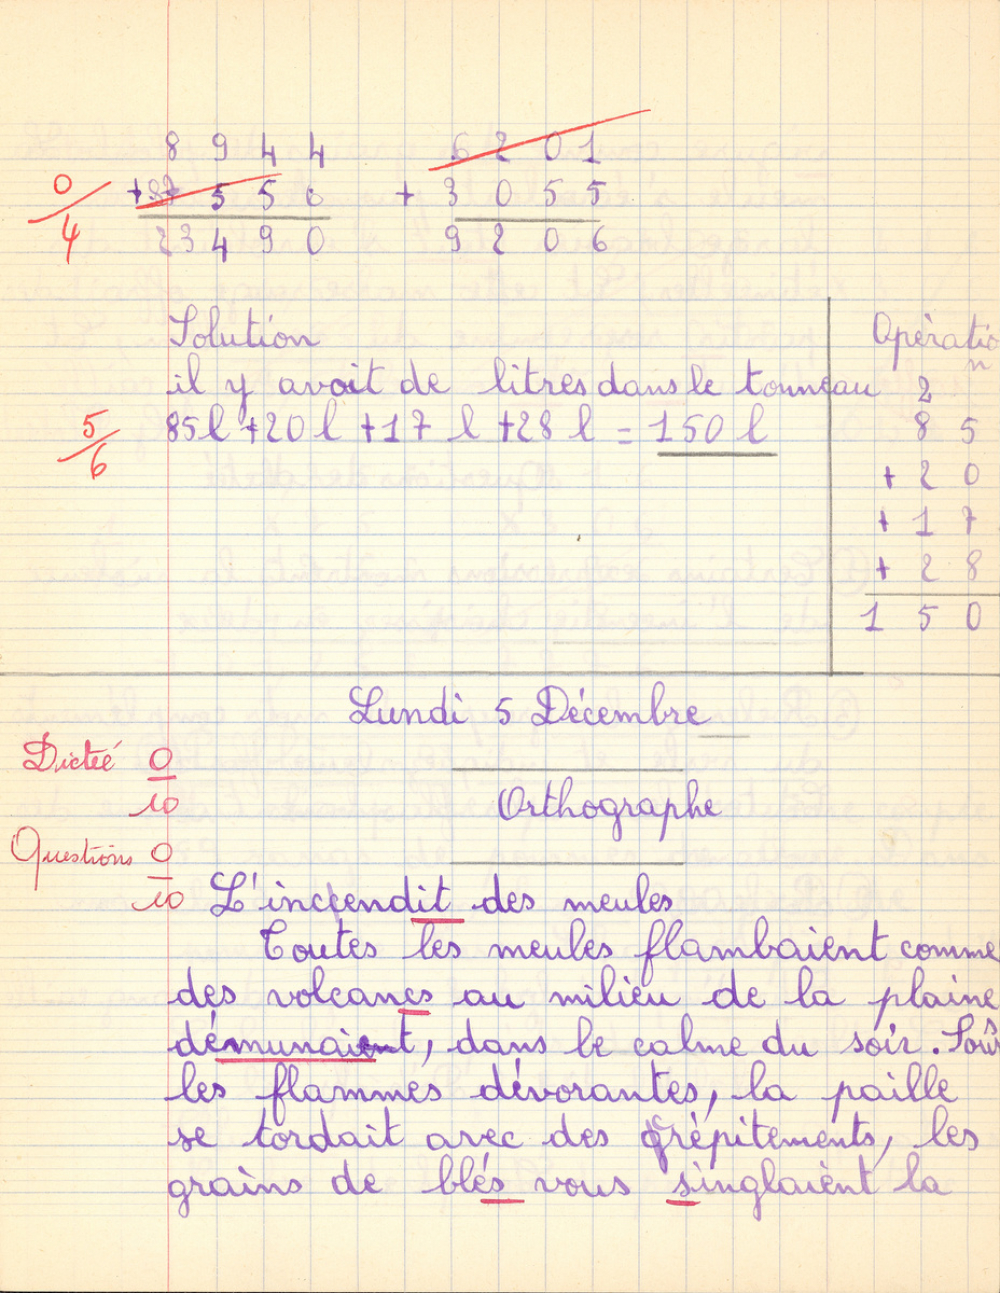 8 9 4 4
5 5
2 3 4 9 0
6 2 0 1
+ 3 0 5 5
9 2 0 6
0/4
Solution
il y avait de litres dans le tonneau
85 l + 20 l + 17 l + 28 l = 150 l
5/6
Opératio
n
2
8 5
+ 2 0
+ 1 7
+ 2 8
1 5 0
Lundi 5 Décembre
Dictée 0/10
Orthographe
Questions 0/10
L'incendit des meules
Toutes les meules flambaient comme
des volcanes au milieu de la plaine
démunaient, dans le calme du soir. Sous
les flammes dévorantes, la paille
se tordait avec des crépitements, les
grains de blés vous singlaient la